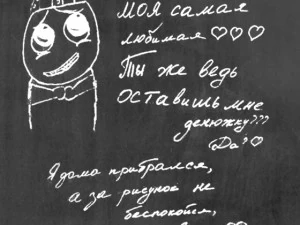 Моя самая
любимая ♡♡♡
Ты же ведь
оставишь мне
денюжку???
Да?♡
Я дома прибрался,
а за рисунок не
беспокойся,